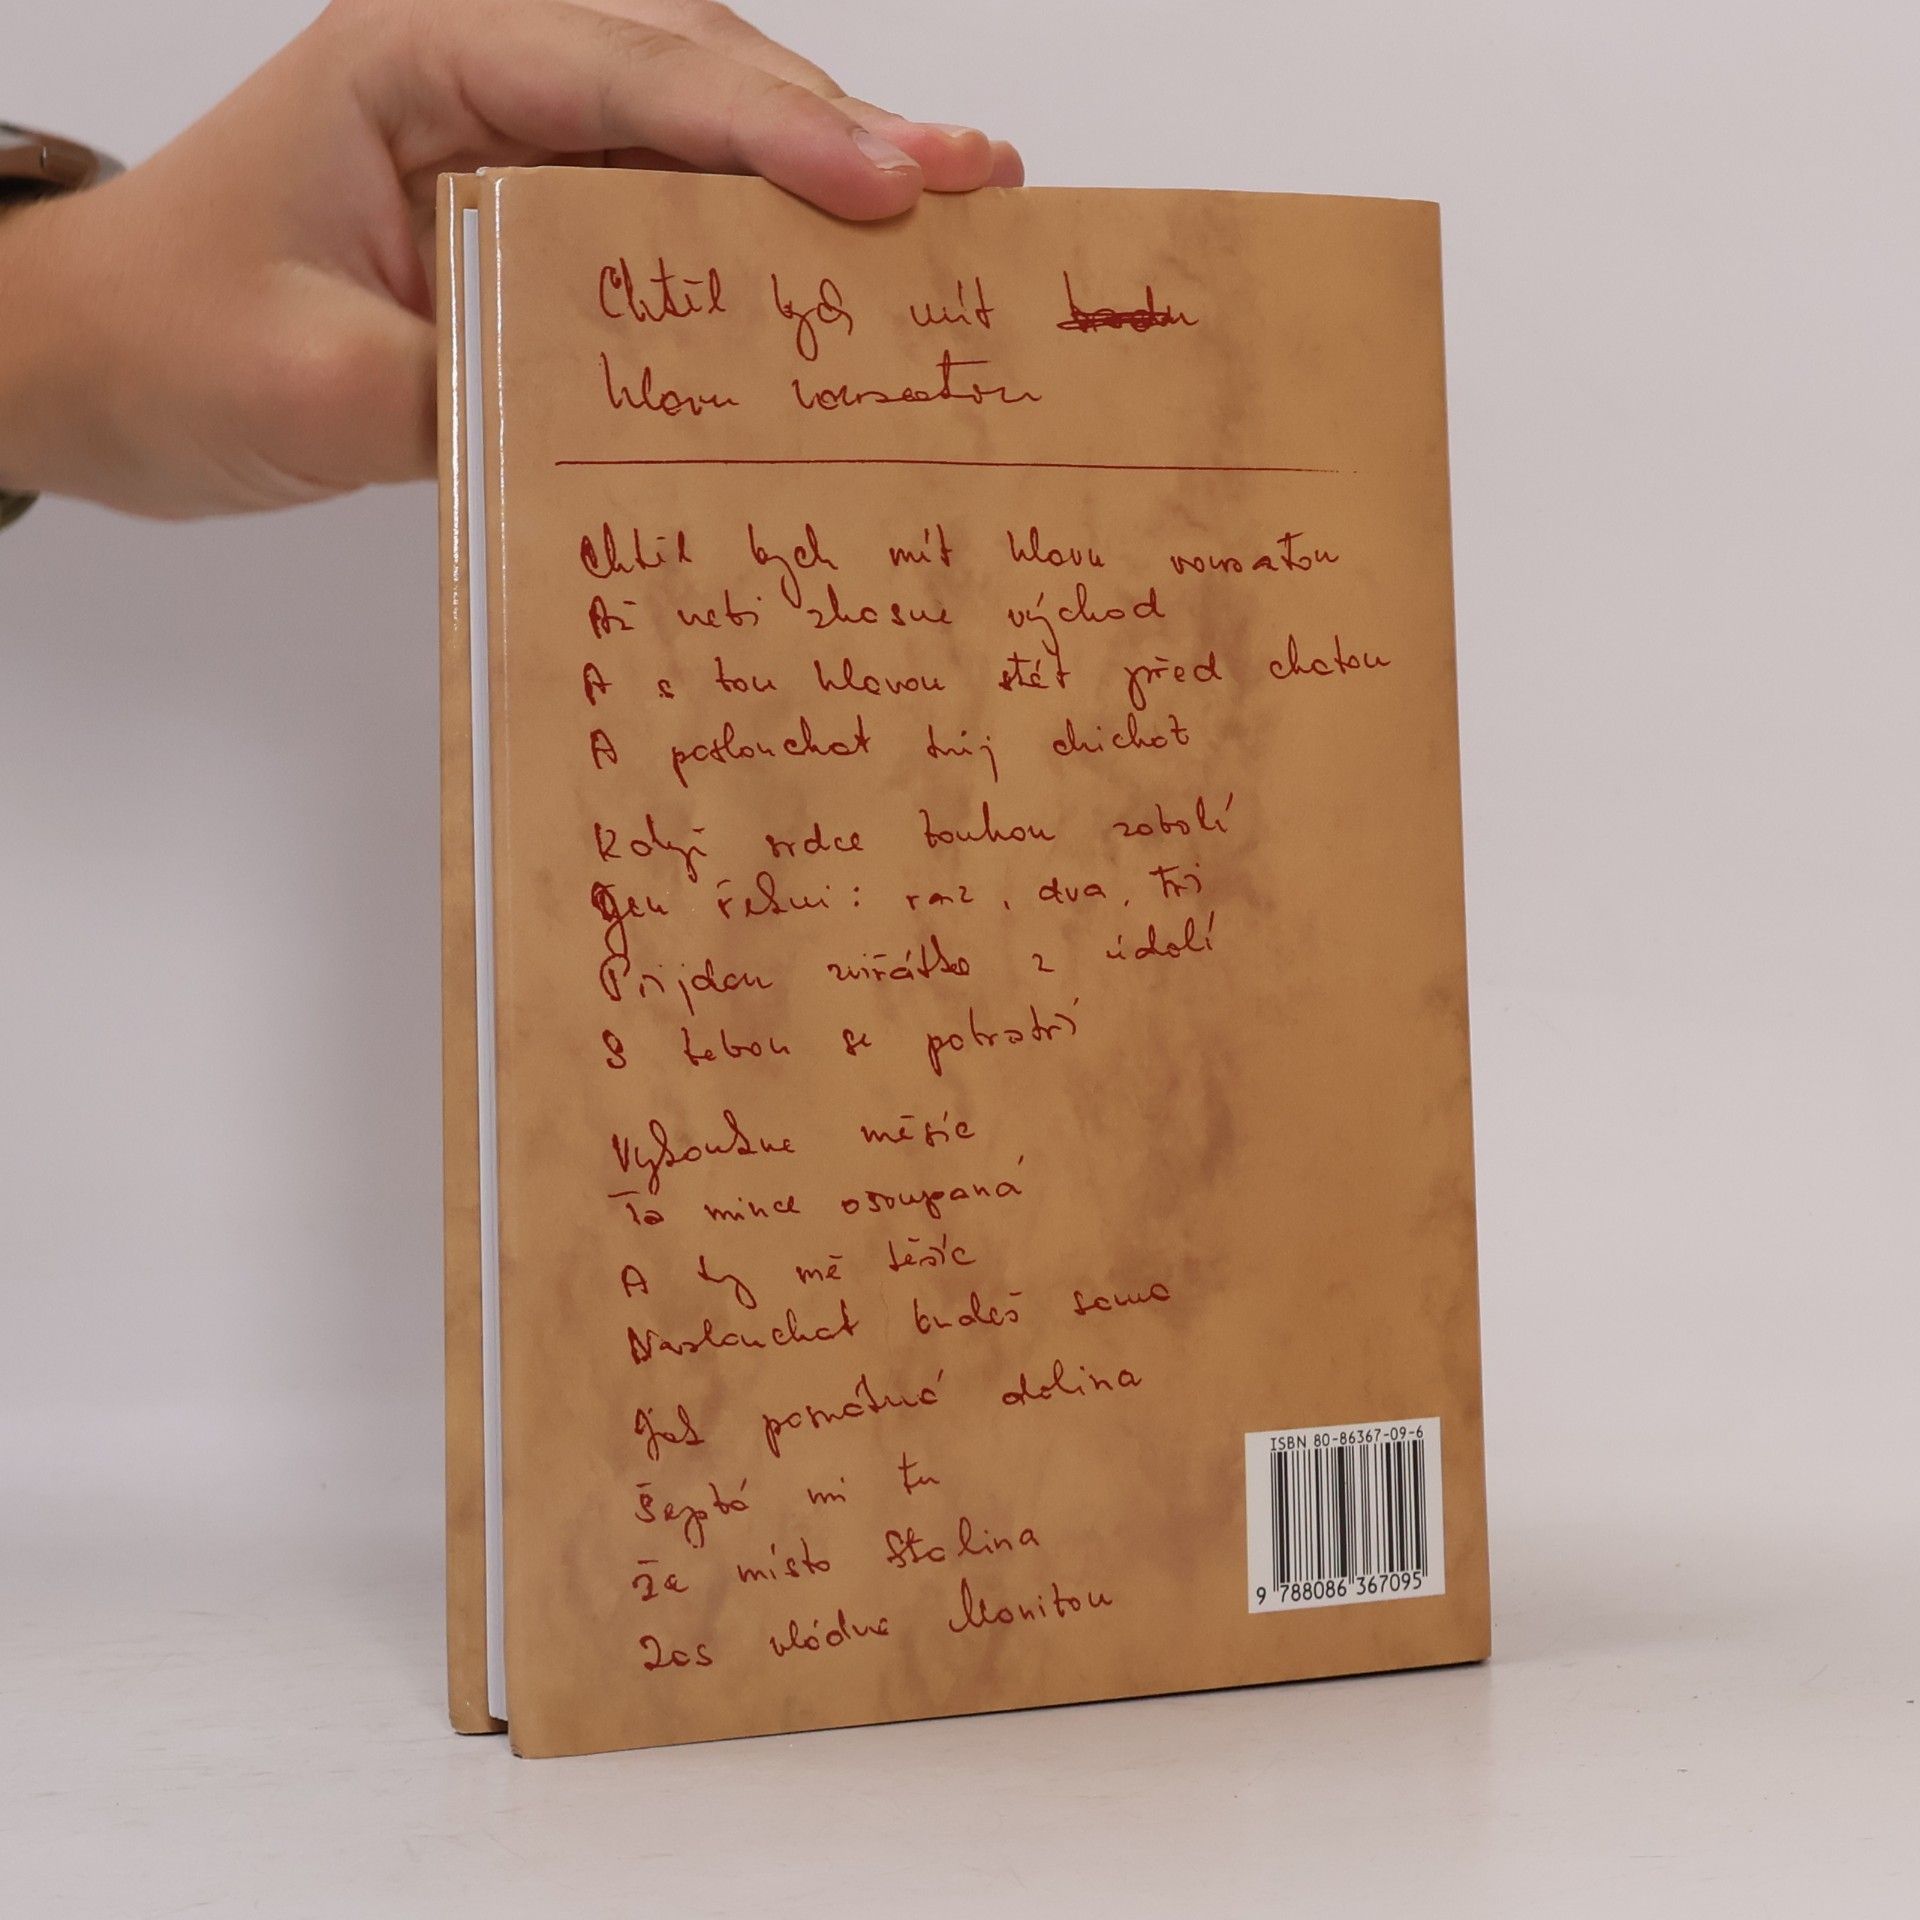 Chtěl bych mít
hlavu vousatou
Chtěl bych mít hlavu vousatou
Až nebi zhasne východ
A s tou hlavou stát před chatou
A poslouchat tvůj chichot
Když srdce touhou zabolí
Jen řekni: raz, dva, tři
Přijdou zvířátka z údolí
S tebou se pobratří
Vykoukne měsíc
Ta mince ošoupaná
A ty mě těšíc
Naslouchat budeš sama
Jak památná dolina
Šeptá mi tu
Že místo Stalina
Zas vládne Manitou
ISBN 80-86367-09-6
9 788086 367095